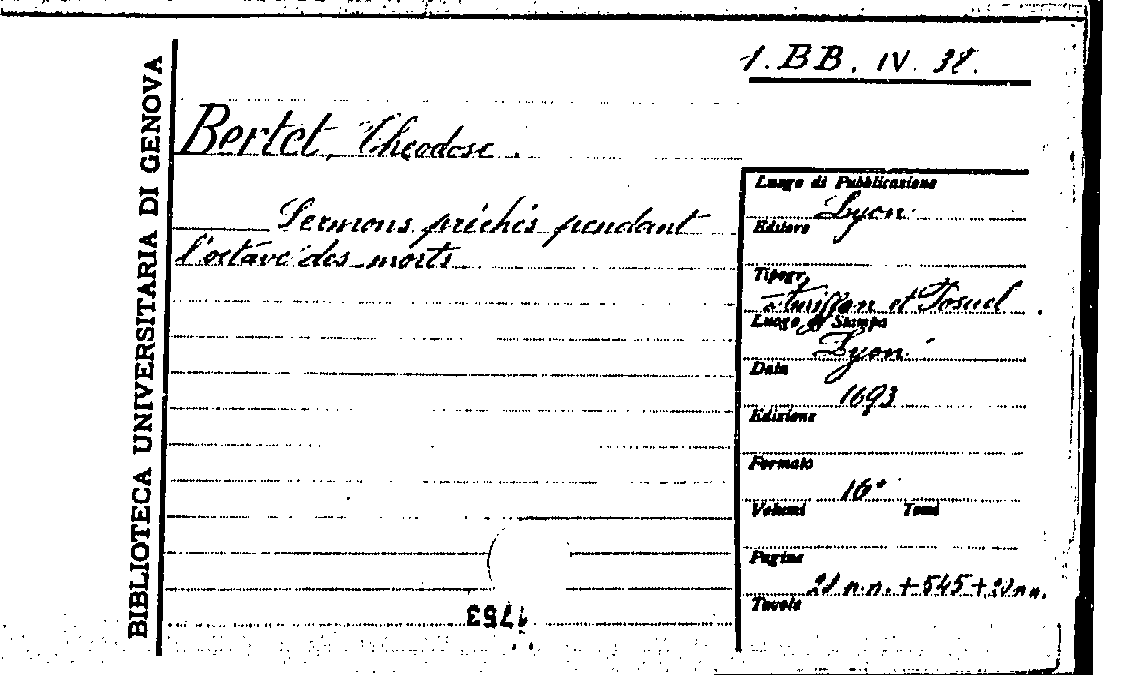 1. BB. IV. 38.
BIBLIOTECA UNIVERSITARIA DI GENOVA
Bertet, Théodose.
Sermons prêchés pendant
l'octave des morts
Luogo di Pubblicazione
Lyon
Editore
Tipogr.
et Posuel
Luogo di Stampa
Lyon
Data
1693
Edizione
Formato
16°
Volumi Tomi
Pagine
n.n. + 545 + n.n.
Tavole
1753